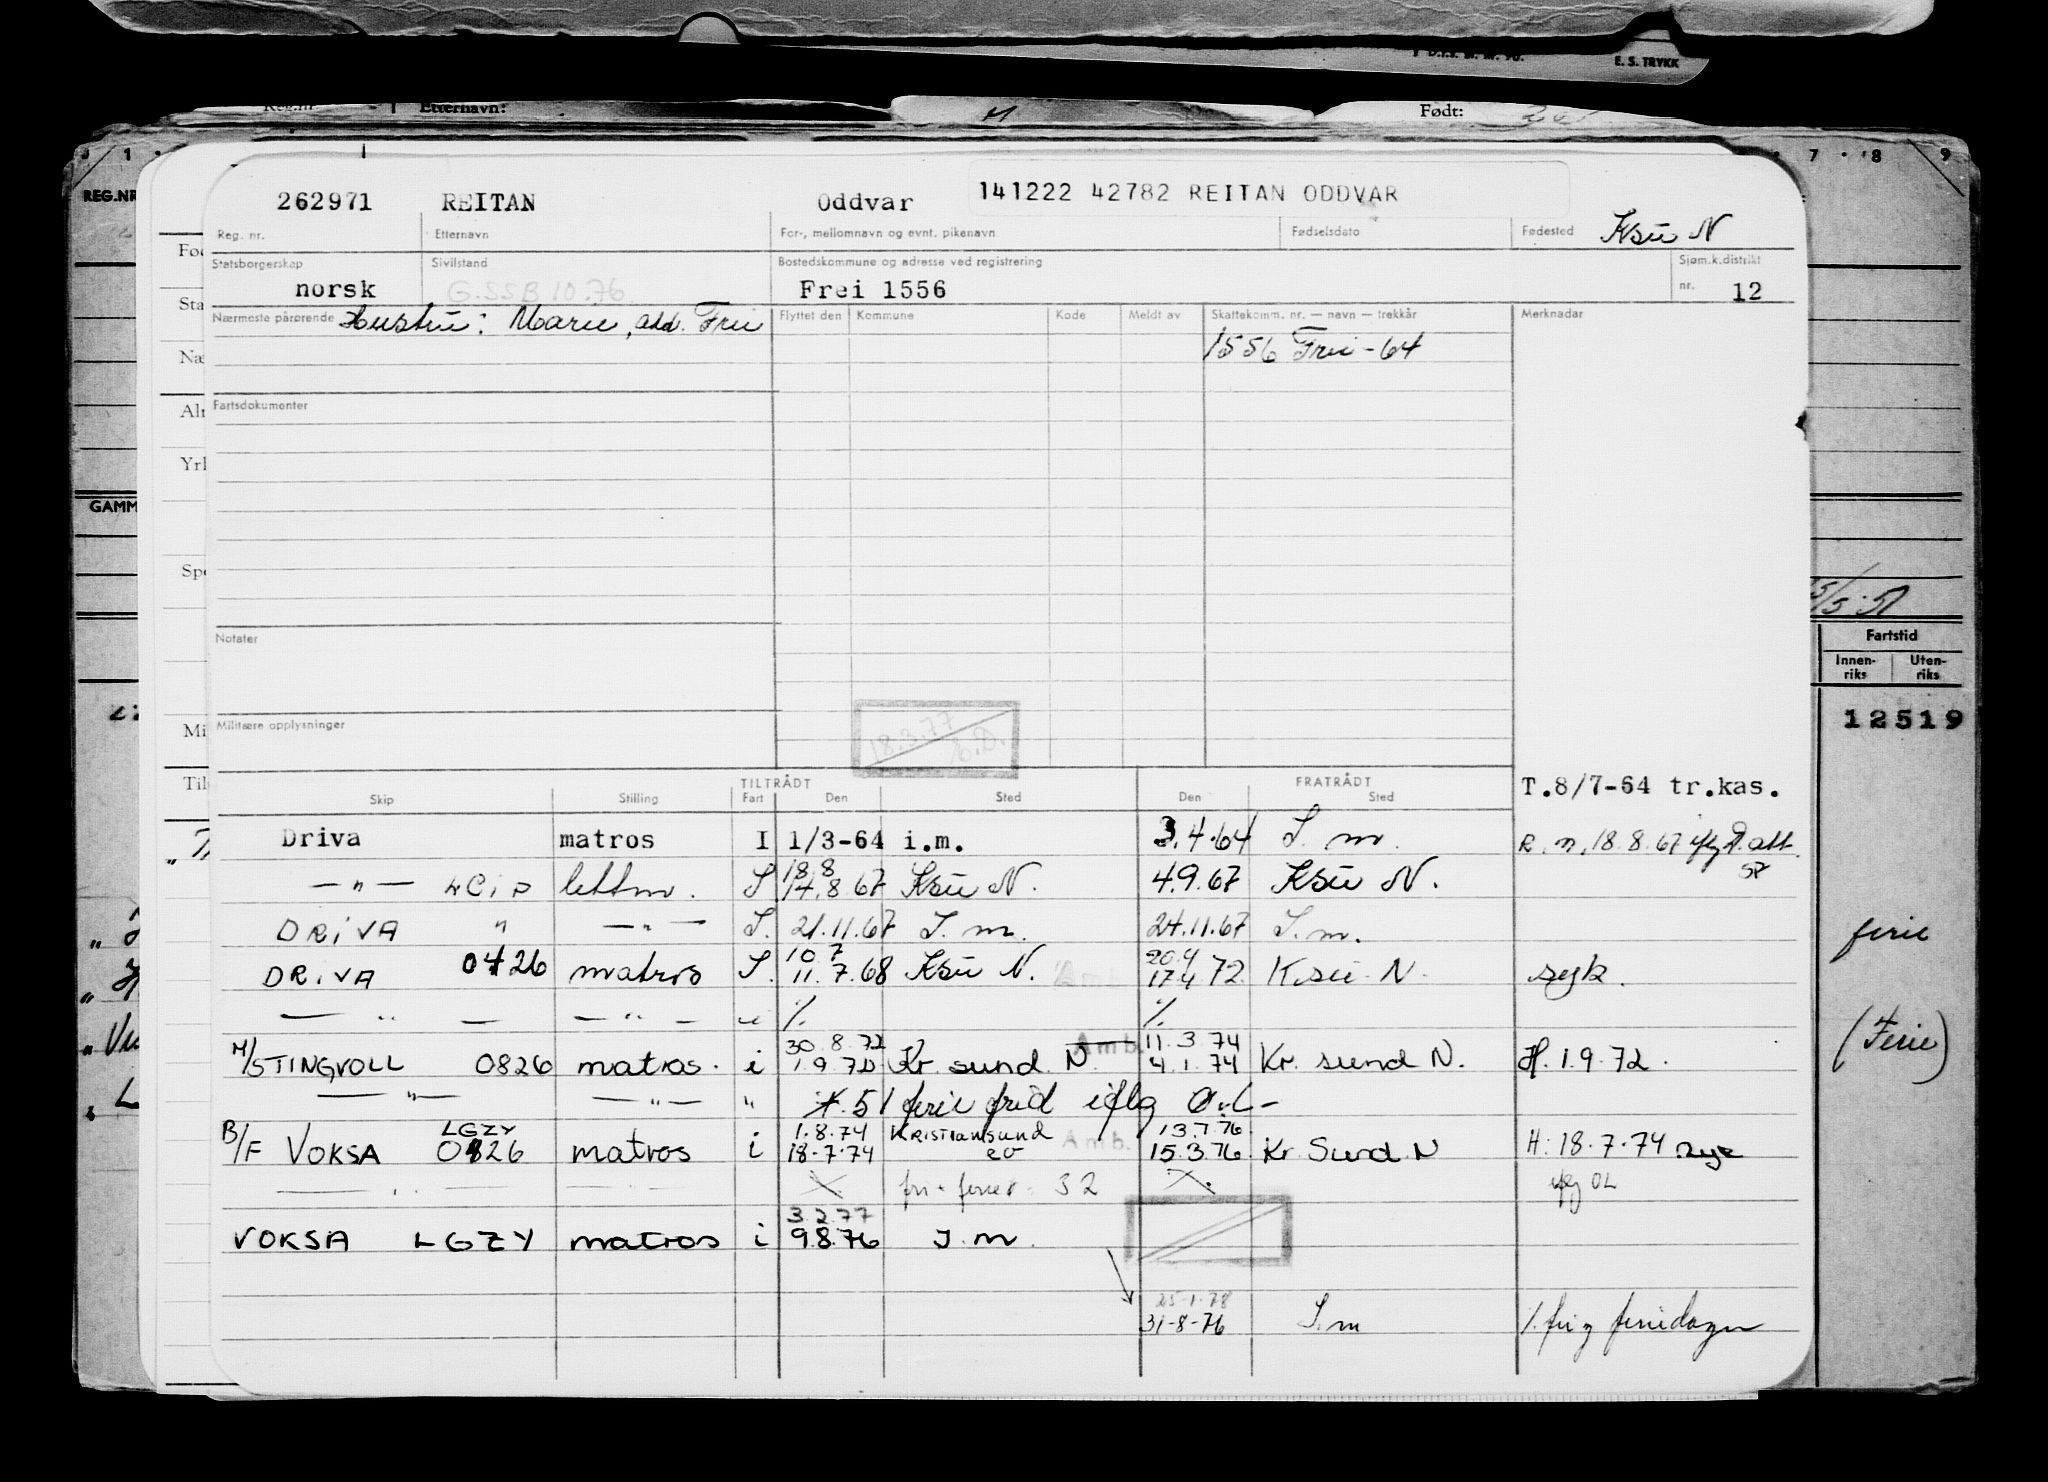 E. S. TRYKK
Reg.nr. Etternavn: Født:
1 7 8 9
REG.NR
262971 REITAN Oddvar 141222 42782 REITAN ODDVAR
Reg. nr. Etternavn For-, mellomnavn og evnt. pikenavn Fødselsdato Fødested Ksu N
Statsborgerskap Sivilstand Bostedskommune og adresse ved registrering Sjøm.k.distrikt
norsk G.SSB 10.76 Frei 1556 nr. 12
Nærmeste pårørende Hustru: Marie, add. Frei Flyttet den Kommune Kode Meldt av Skattekomm. nr. — navn — trekkår Merknader
1556 Frei - 64
Fartsdokumenter
GAMM
5/5-51
Notater
Fartstid
Innen-riks Uten-riks
Militære opplysninger
18.3.77
12519
TILTRÅDT FRATRÅDT T.8/7-64 tr.kas.
Skip Stilling Fart Den Sted Den Sted
Driva matros I 1/3-64 i.m. 3.4.64 I. m. R. m. 18.8.67 iflg att.
18.8
— " — LCIP lettm. I 14.8.67 Ksu N. 4.9.67 Ksu N.
DRIVA " — " — I. 21.11.67 I. m. 24.11.67 I. m.
ferie
10.7 20.4
DRIVA 0426 matros I. 11.7.68 Ksu N. 17.4.72 Ksu N. syk.
— " — — " — i /. /.
30.8.72 Amb. 11.3.74
M/S TINGVOLL 0826 matros. i 1.9.72 Kr sund. N. 4.1.74 Kr. sund N. H. 1.9.72.
(Ferie)
— " — — " — " 51 ferie frid iflg O.L-
LGZY 1.8.74 KRISTIANSUND Amb. 13.7.76
B/F VOKSA 0826 matros i 18.7.74 15.3.76 Kr Sund N H: 18.7.74
fri + ferier 32 iflg OL
3.2.77
VOKSA LGZY matros i 9.8.76 I. m.
25.1.78
31-8-76 I. m /. fri og feriedager